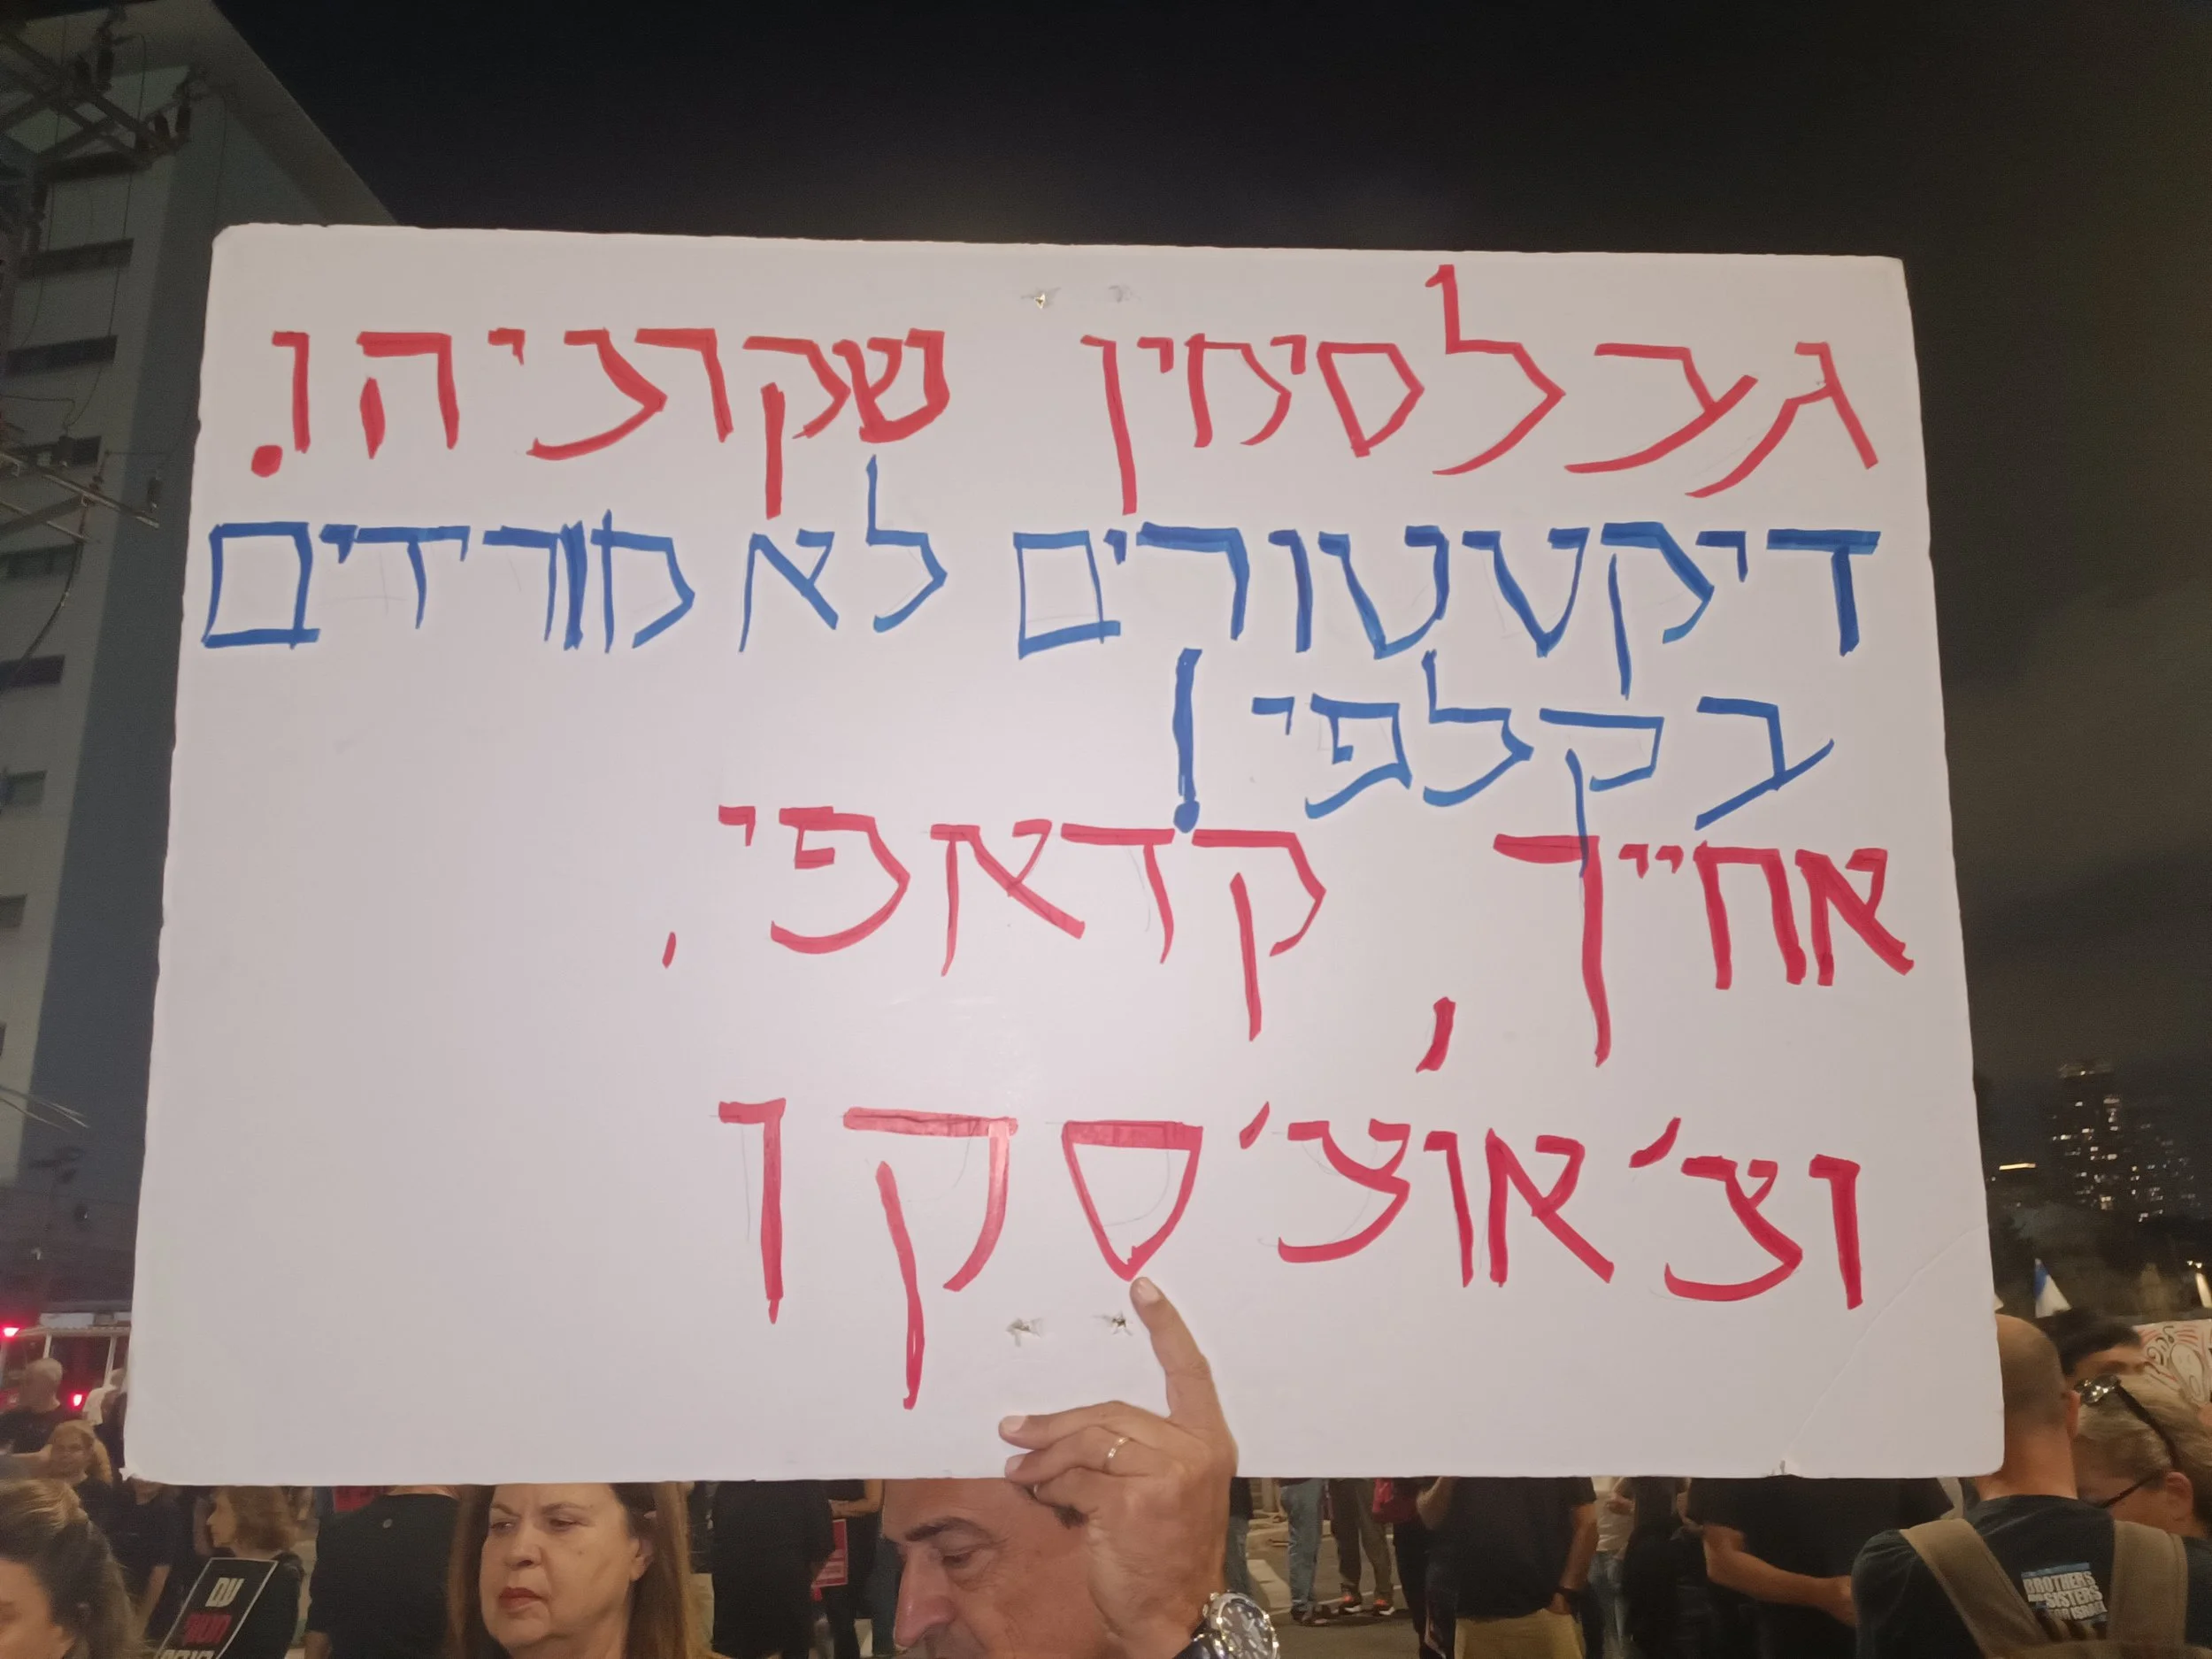 גבלסימין שקרניהו.
דיקטטורים לא מורדים
בקלפי!
אחייך, קדאפי,
וצ'אוצ'סקו
עם
BROTHERS
SISTERS